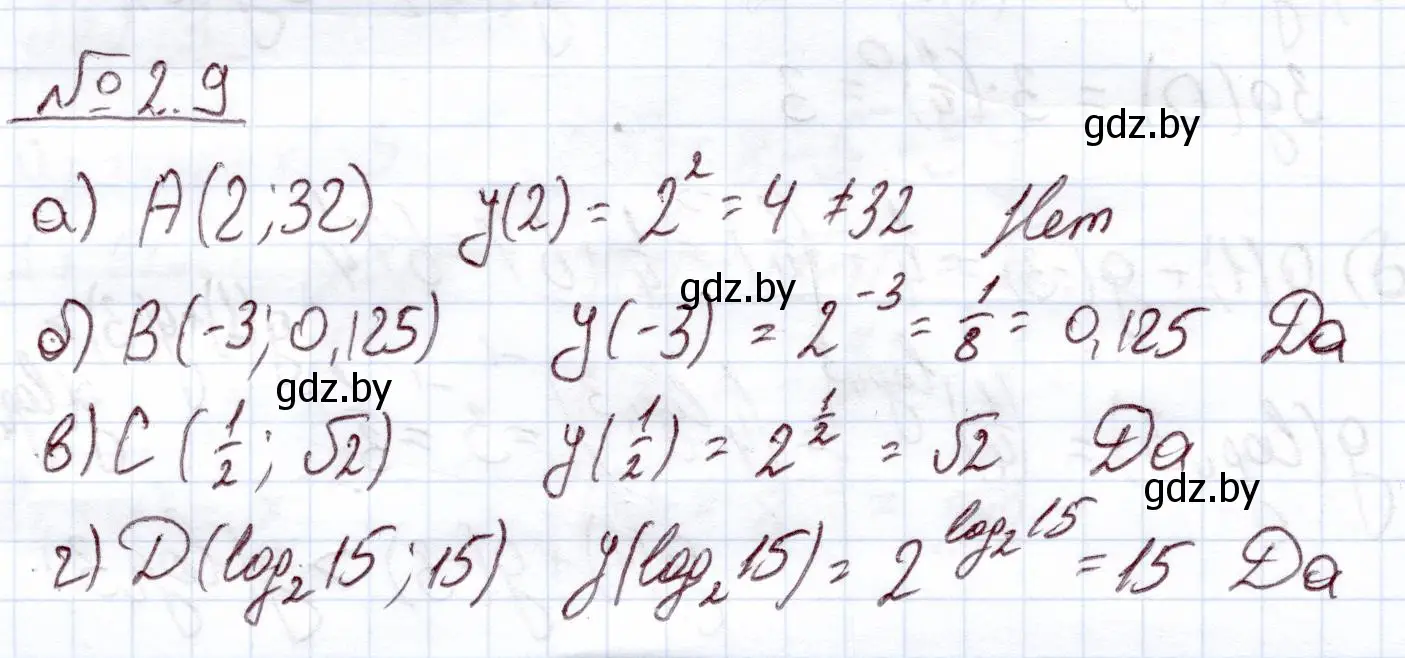 № 2.9
gdz.by
а) A(2;32) y(2) = 2² = 4 ≠ 32 Нет
gdz.by
б) B(-3; 0,125) y(-3) = 2⁻³ = 1/8 = 0,125 Да
gdz.by
в) C(1/2; √2) y(1/2) = 2^(1/2) = √2 Да
gdz.by
г) D(log₂15; 15) y(log₂15) = 2^(log₂15) = 15 Да